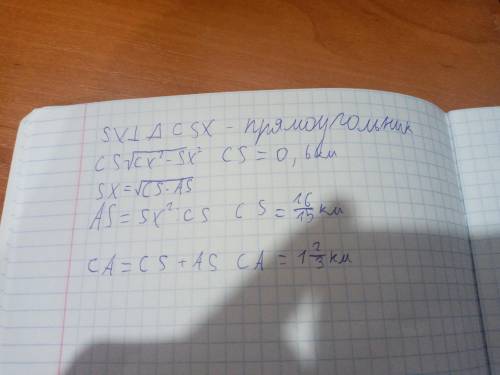 SX⊥ Δ CSX - прямоугольник
CS √CX²-SX² CS = 0,6км
SX=√CS·AS
AS = SX²·CS CS = 16/15 км
CA = CS + AS CA = 1 2/3 км